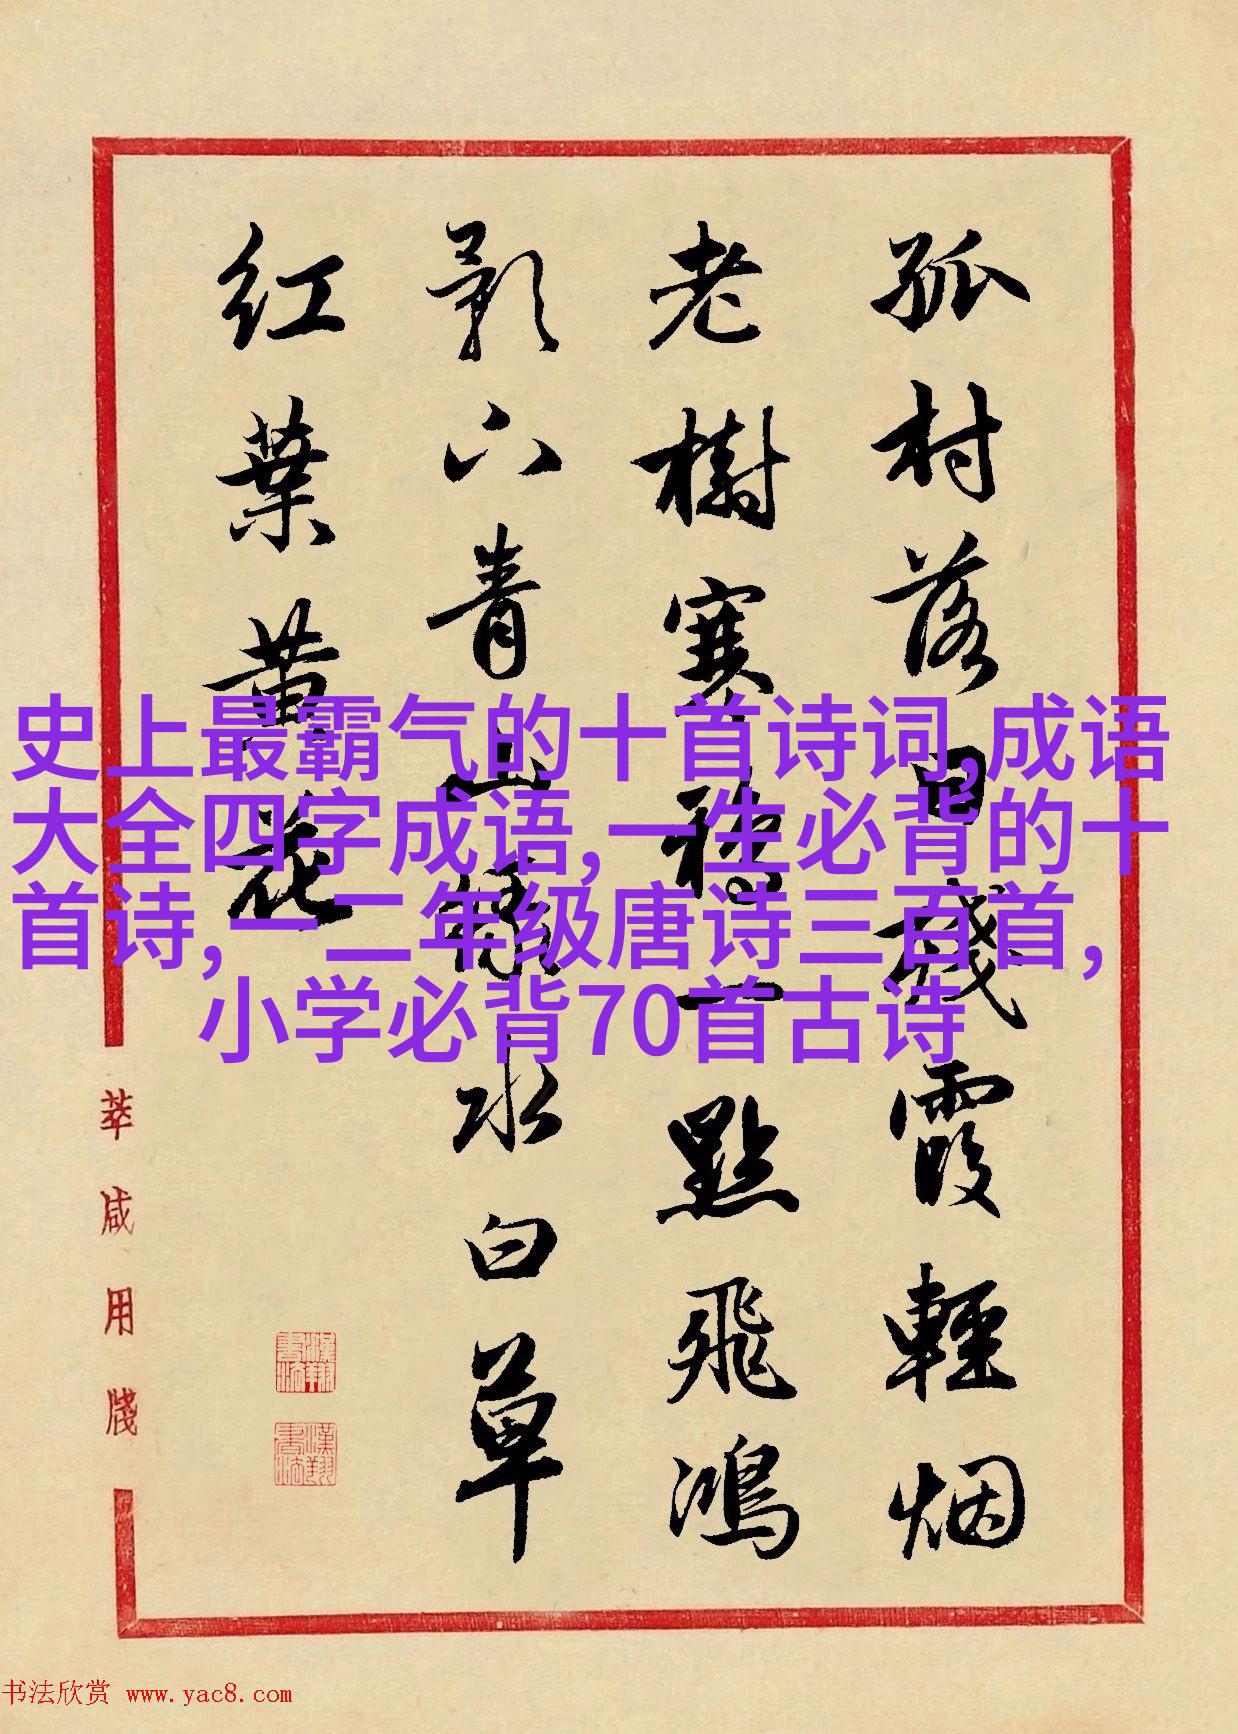 孤村落日殘霞輕烟
老樹寒鴉一點飛鴻
影下青山綠水白草
紅葉黃花
萃咸用牋
史上最霸气的十首诗词,成语
大全四字成语,一生必背的十
首诗,一二年级唐诗三百首,
小学必背70首古诗
书法欣赏 www.yac8.com